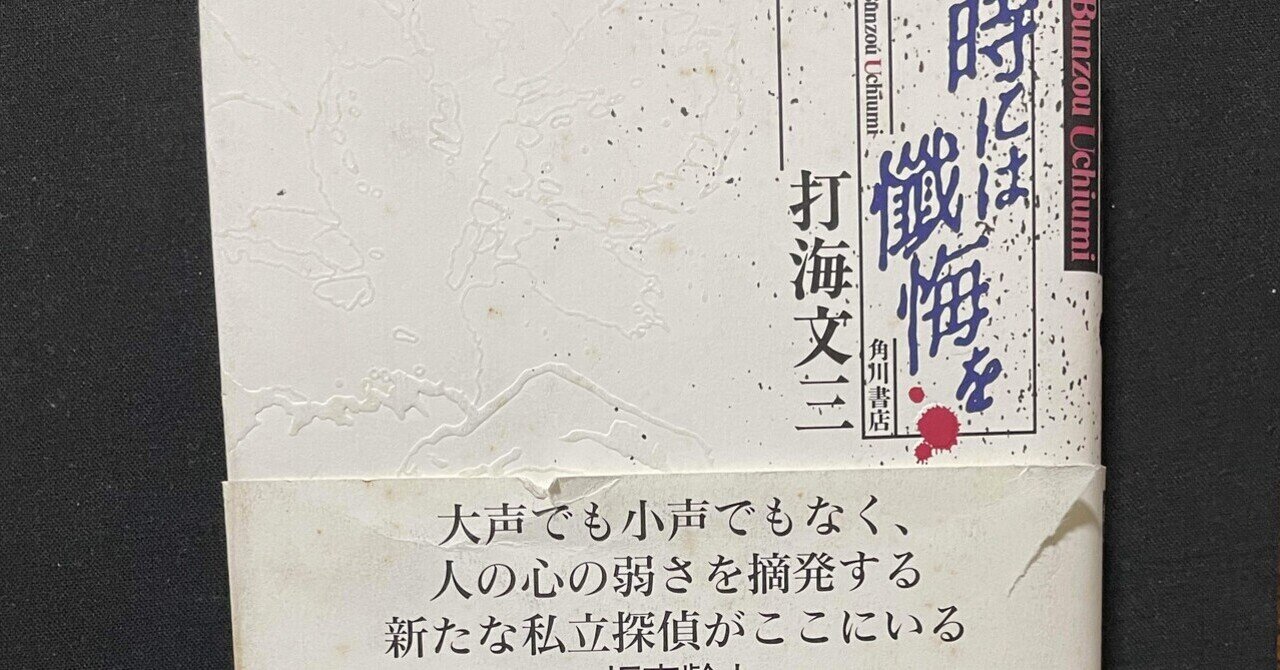 Bunzou Uchiumi
時には
懺悔を
Bunzou Uchiumi
打海文三
角川書店
大声でも小声でもなく、
人の心の弱さを摘発する
新たな私立探偵がここにいる